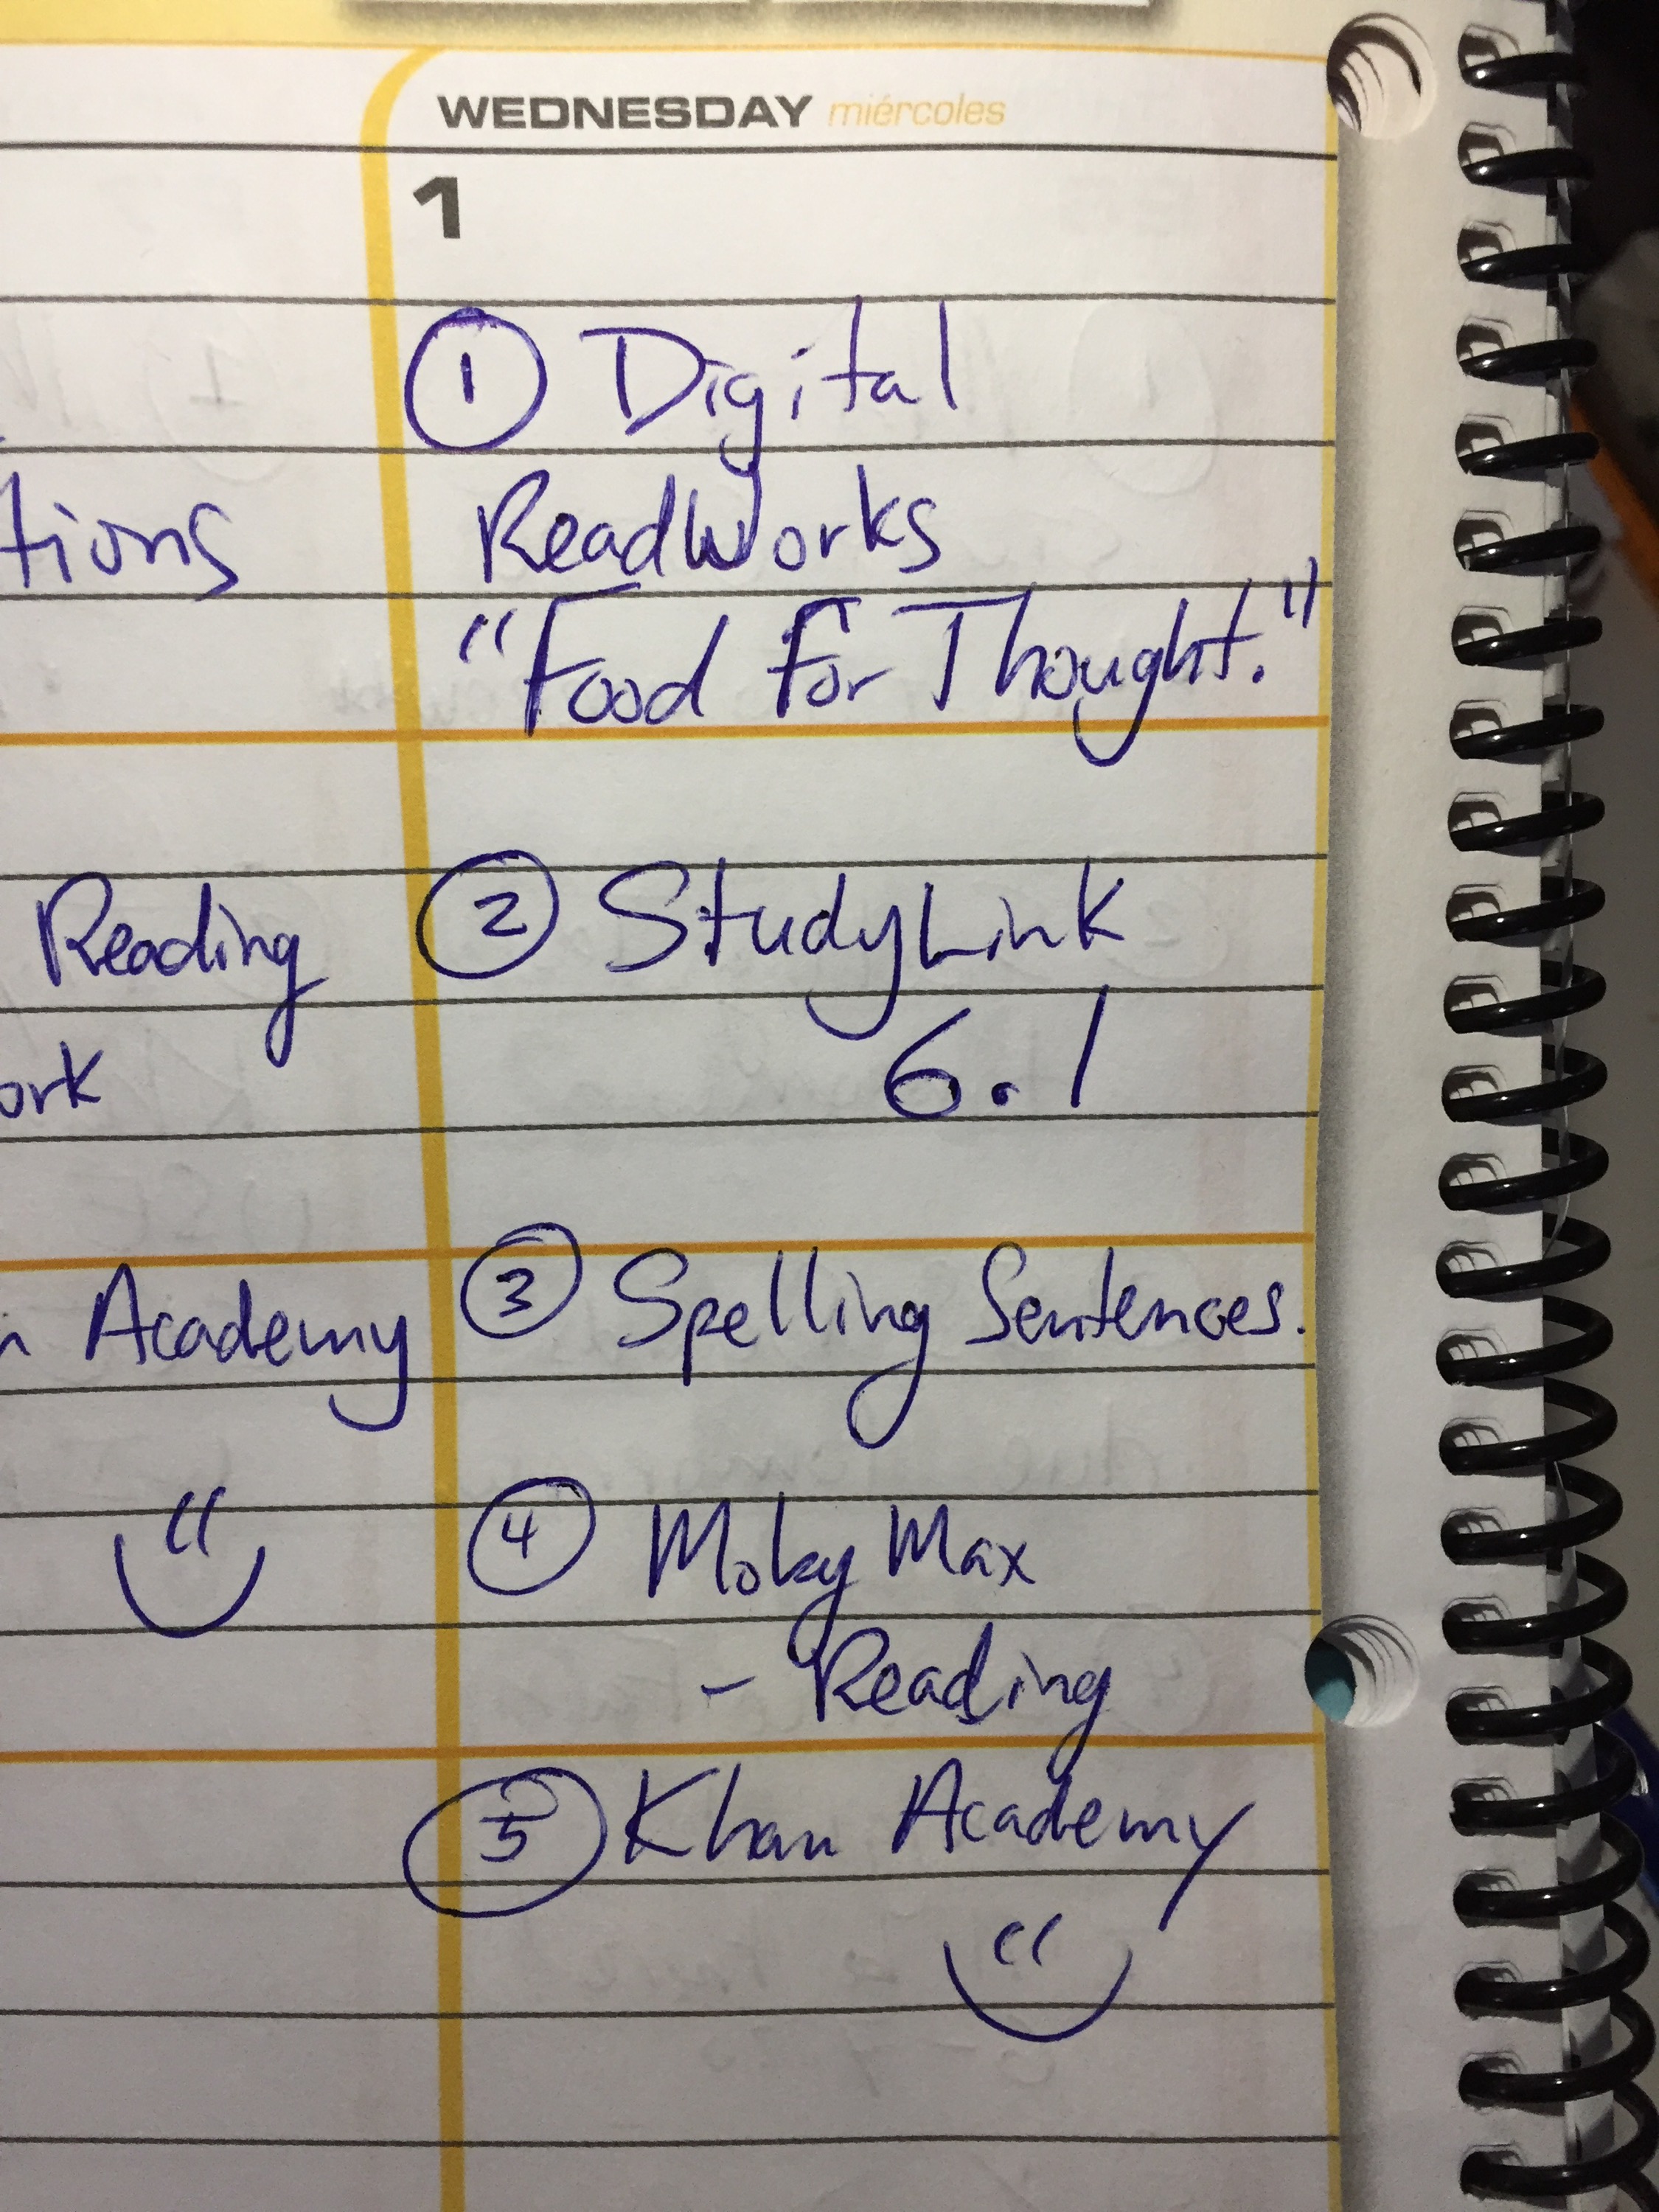 WEDNESDAY miércoles
1
① Digital
ReadWorks
"Food For Thought."
② StudyLink
6.1
③ Spelling Sentences.
④ Moby Max
- Reading
⑤ Khan Academy
tions
Reading
ork
n Academy